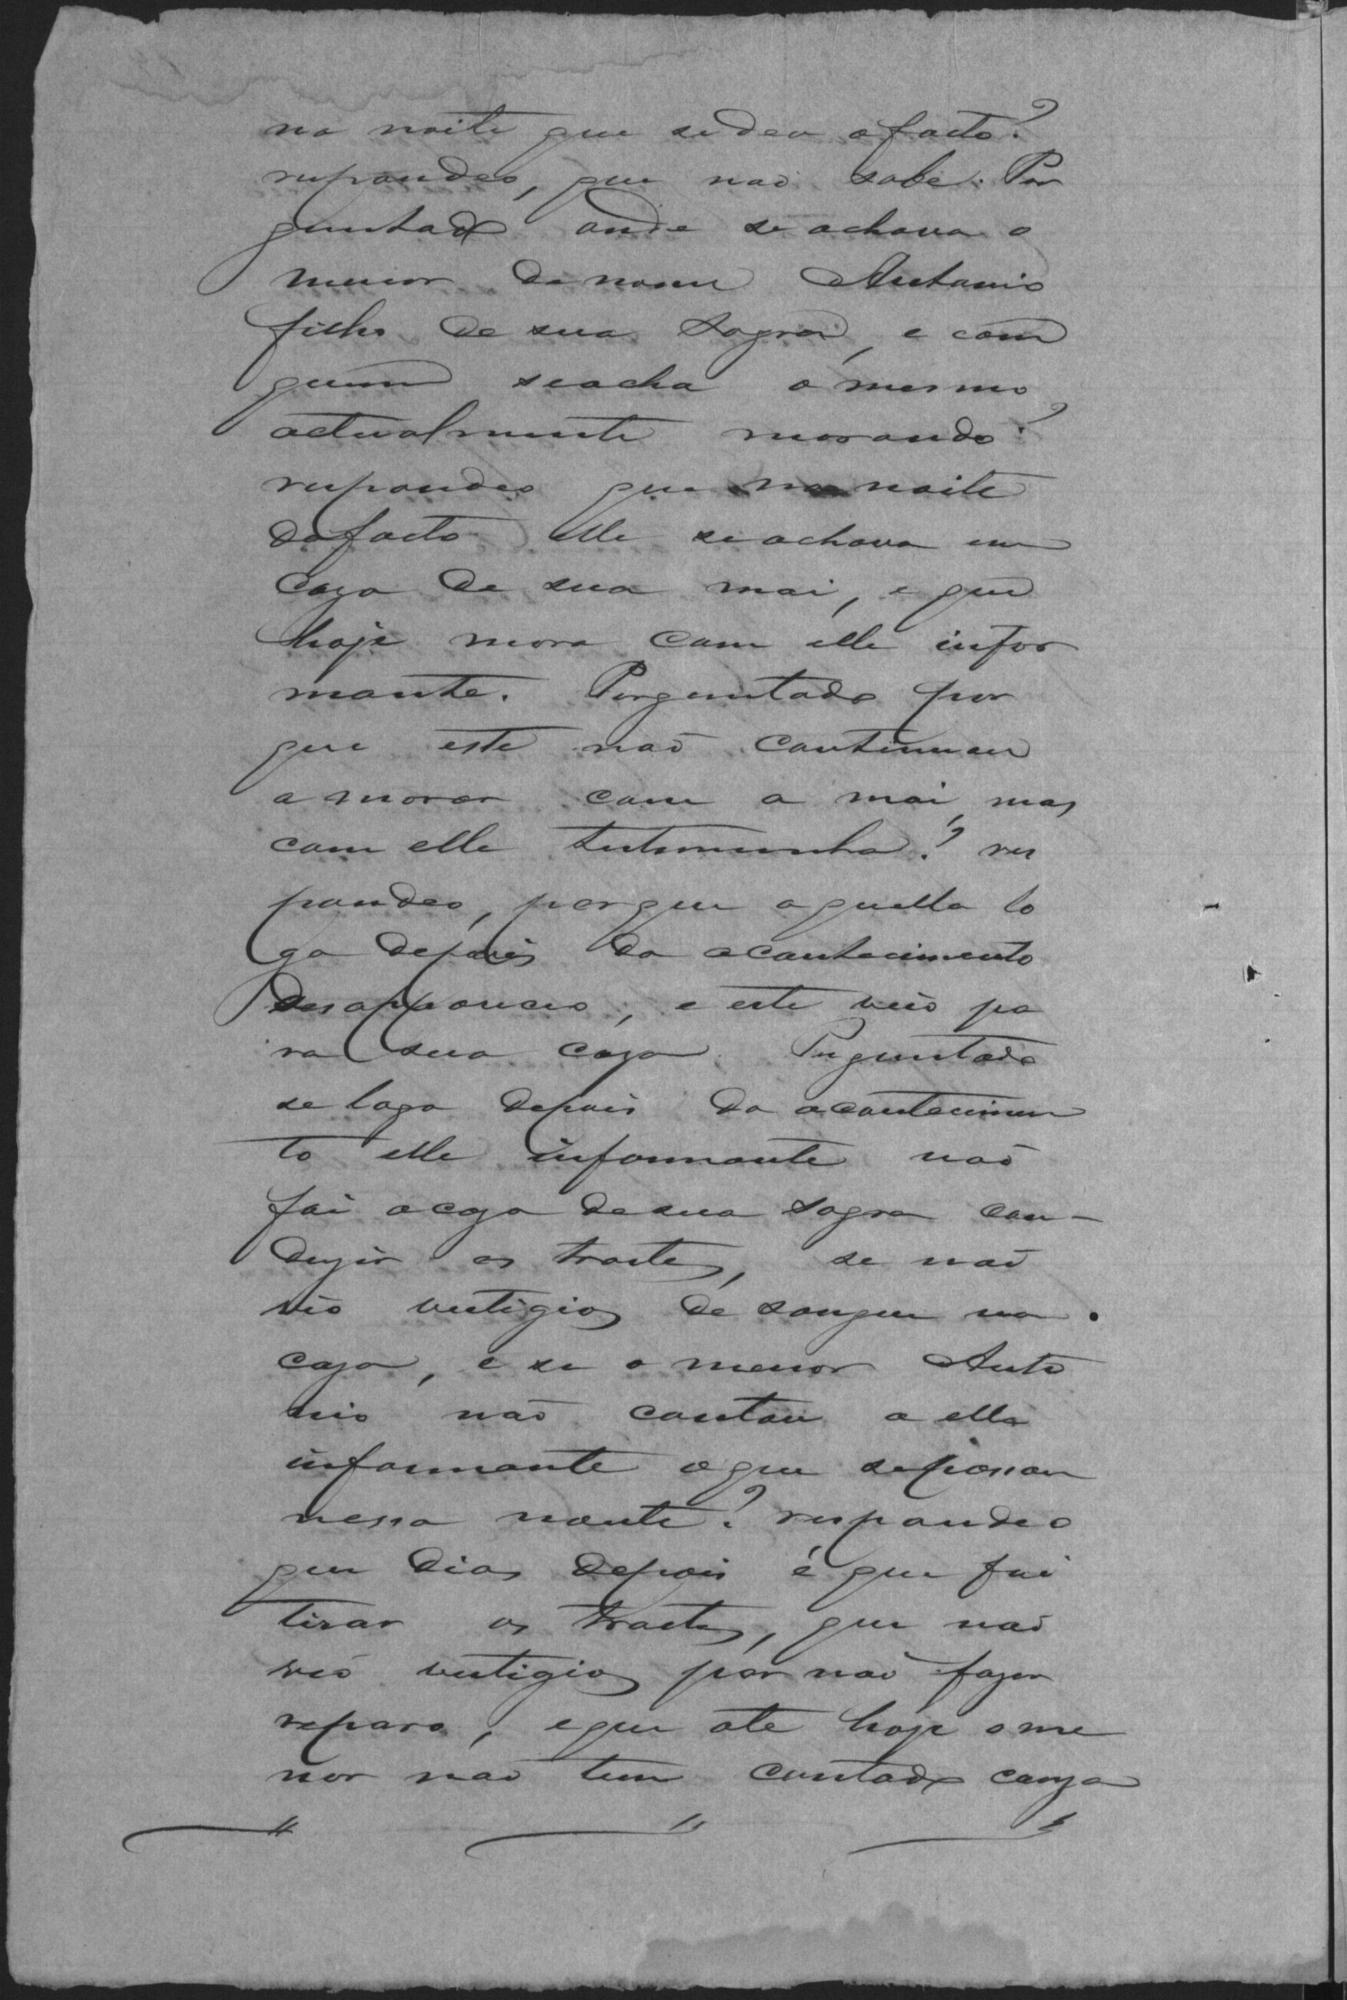 na noite que se deu o facto?
respondeo, que não sabe. Per
guntado onde se achava o
menor de nome Antonio
filho de sua sogra, e com
quem se acha o mesmo
actualmente morando?
respondeo que na noite
do facto elle se achava em
caza de sua mai, e que
hoje mora com elle infor
mante. Perguntado por
que este não continuou
a morar com a mai, mas
com elle testemunha? res
pondeo, porque aquella lo
go depois do acontecimento
desappareceo, e este veio pa
ra sua caza. Perguntado
se logo depois do acontecimen
to elle informante não
foi a caza de sua sogra con-
duzir os trastes, se não
vio vestigios de sangue na
caza, e se o menor Anto
nio não contou a elle
informante o que se passou
nessa noute? respondeo
que dias depois é que foi
tirar os trastes, que não
vio vestigios por não fazer
reparo, e que até hoje o me
nor não tem contado couza